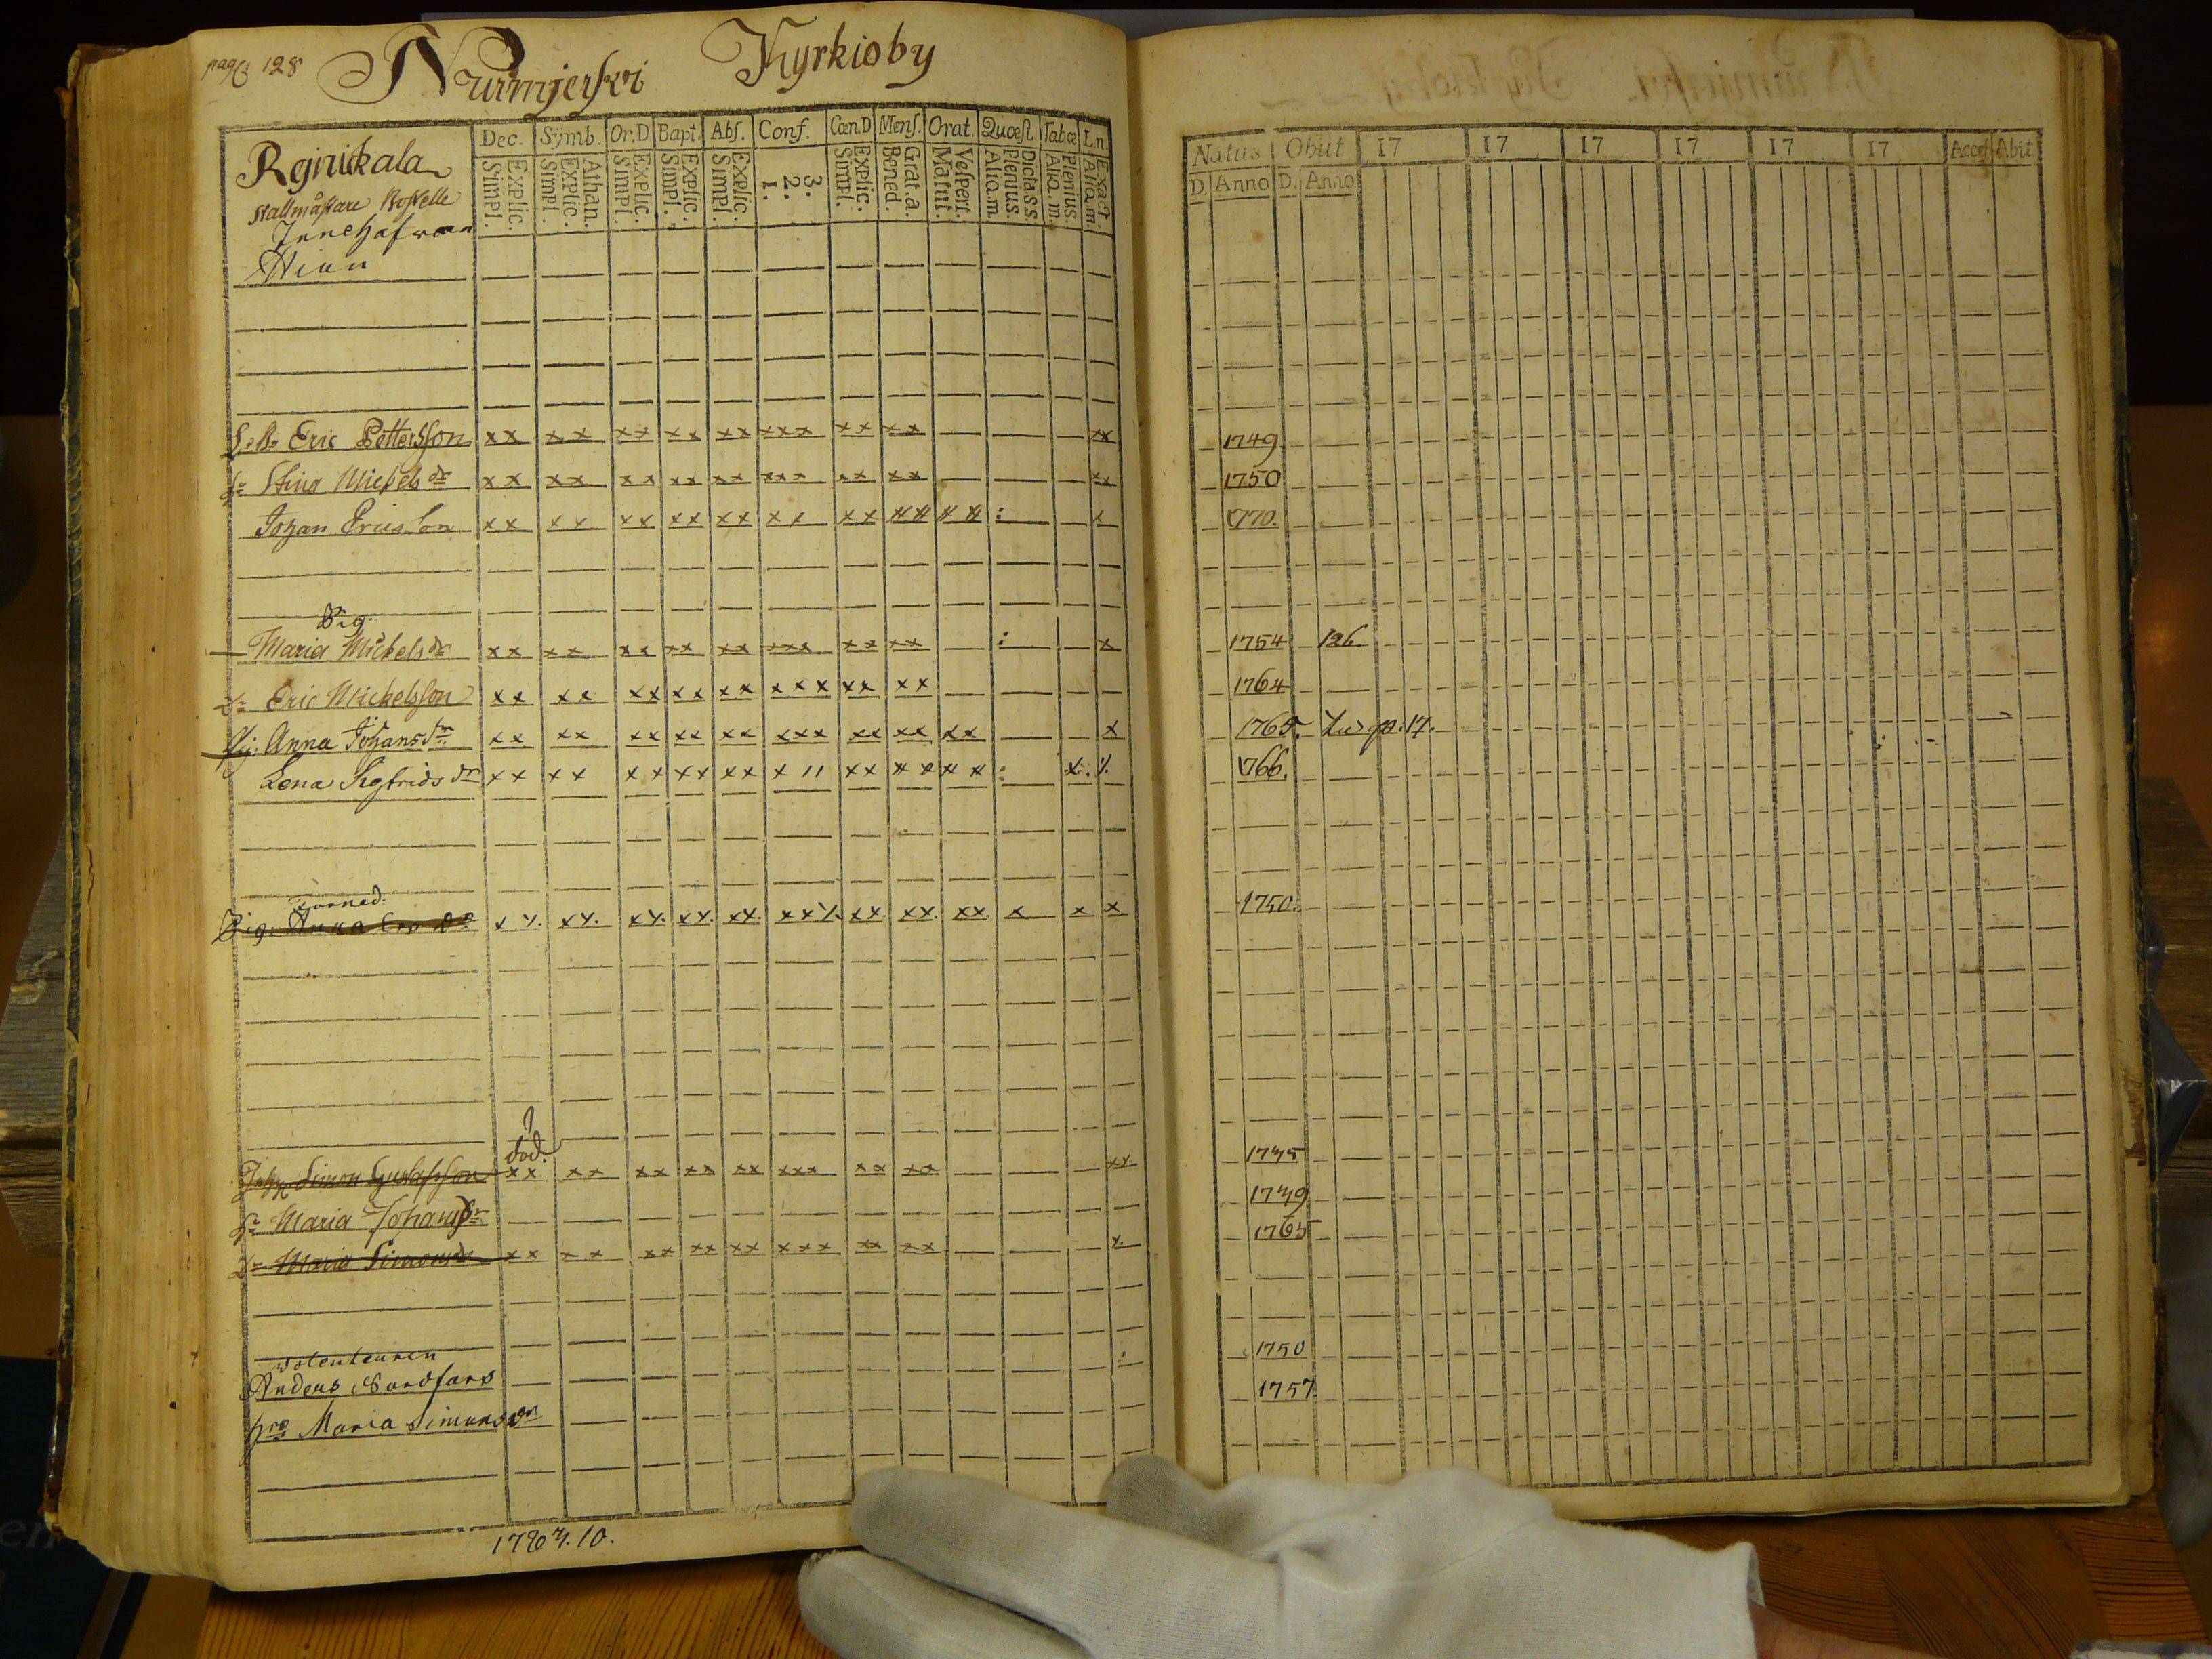 pag: 128 Nurmjerfvi Kyrkioby
Dec. Symb. Or.D Bapt. Abſ. Conf. Cœn.D Menſ. Orat. Quœſt Tabœ L.n.
Explic. Simpl. Athan. Explic. Simpl. Explic. Simpl. Explic. Simpl. Explic. Simpl. 3. 2. 1. Explic. Simpl. Grat.a. Bened. Veſpert. Matut. Dicta.s.s. Plenius. Aliq.m. Plenius. Aliq.m. Exact. Aliq.m.
Natus Obiit 17 17 17 17 17 17 Acceſ Abit
D. Anno D. Anno
Rajnikala
Stallmästare Bostelle
Innehafvaren
Eric Pettersson xx xx xx xx xx xxx xx xx xx 1749
Stina Mickels dr xx xx xx xx xx xxx xx xx xx 1750
Johan Ericsson xx xx xx xx xx xx xx : x 1770.
Pig.
Maria Mickels dr xx xx xx xx xx xxx xx xx : x 1754 126.
Eric Mickelsson xx xx xx xx xx xxx xx xx 1764
Anna Johans dr xx xx xx xx xx xxx xx xx xx x 1765. p. 17.
Lena Sigfrids dr xx xx xx xx xx x 11 xx : 1766.
Pig. Anna dr 1750.
död.
Simon Gustafsson xx xx xx xx xx xxx xx xx xx 1745
Maria Johans dr 1749
Maria Simons dr xx xx xx xx xx xxx xx xx x 1765
1750
Anders Nordfors 1757
Maria Simons dr